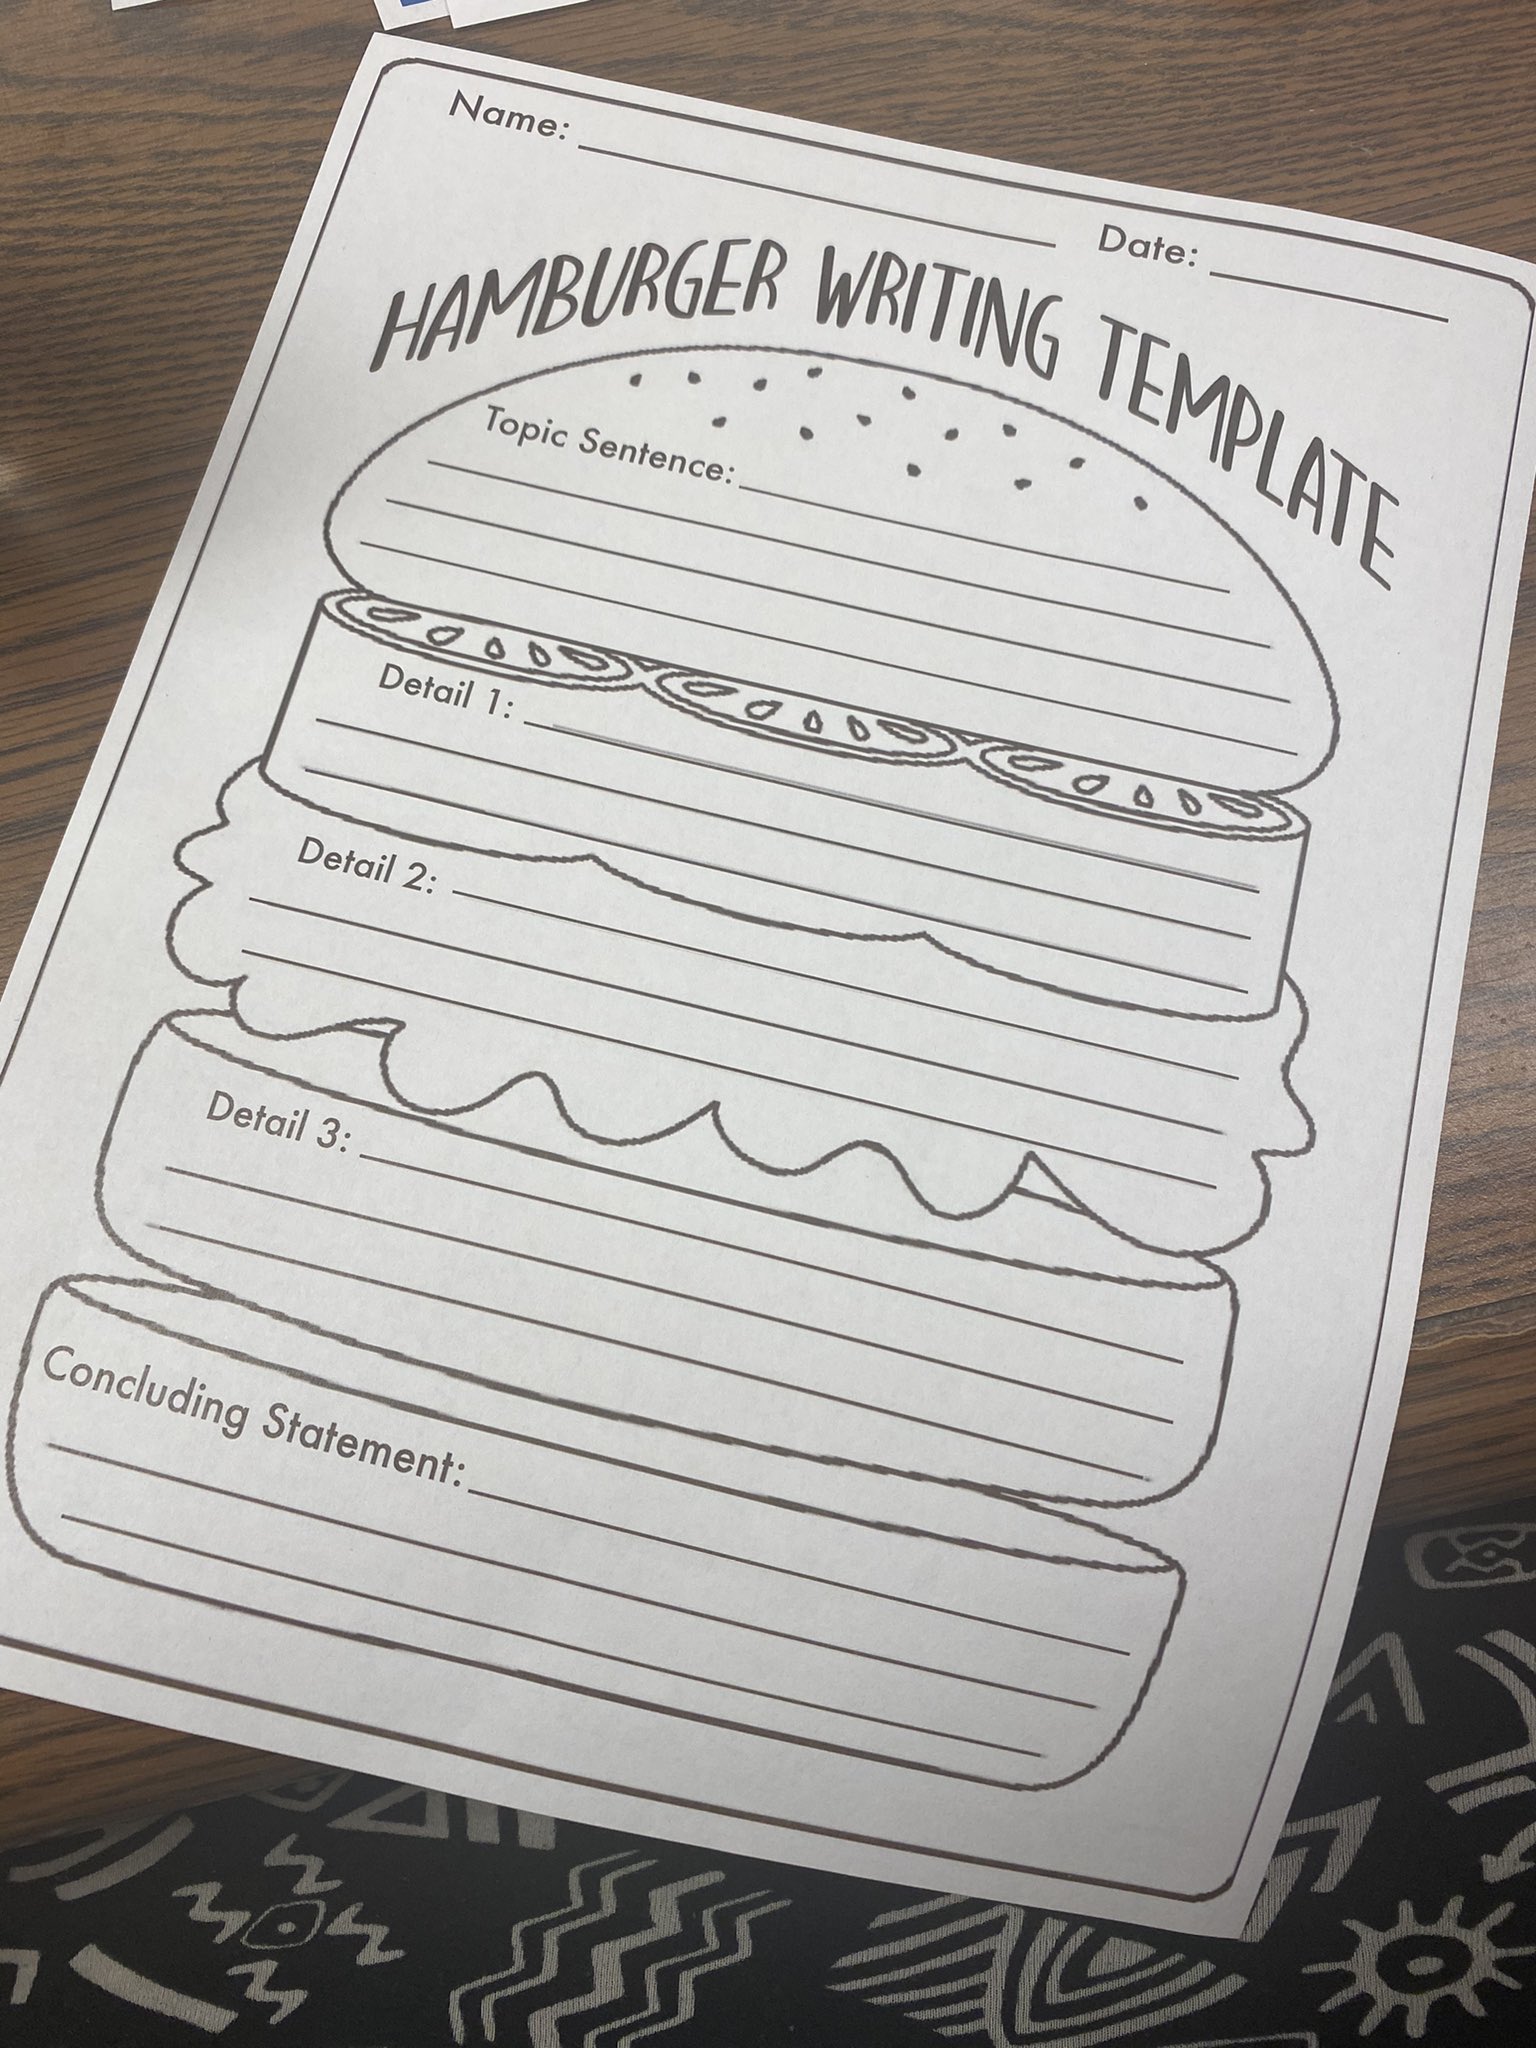 Name:
Date:
HAMBURGER WRITING TEMPLATE
Topic Sentence:
Detail 1:
Detail 2:
Detail 3:
Concluding Statement: